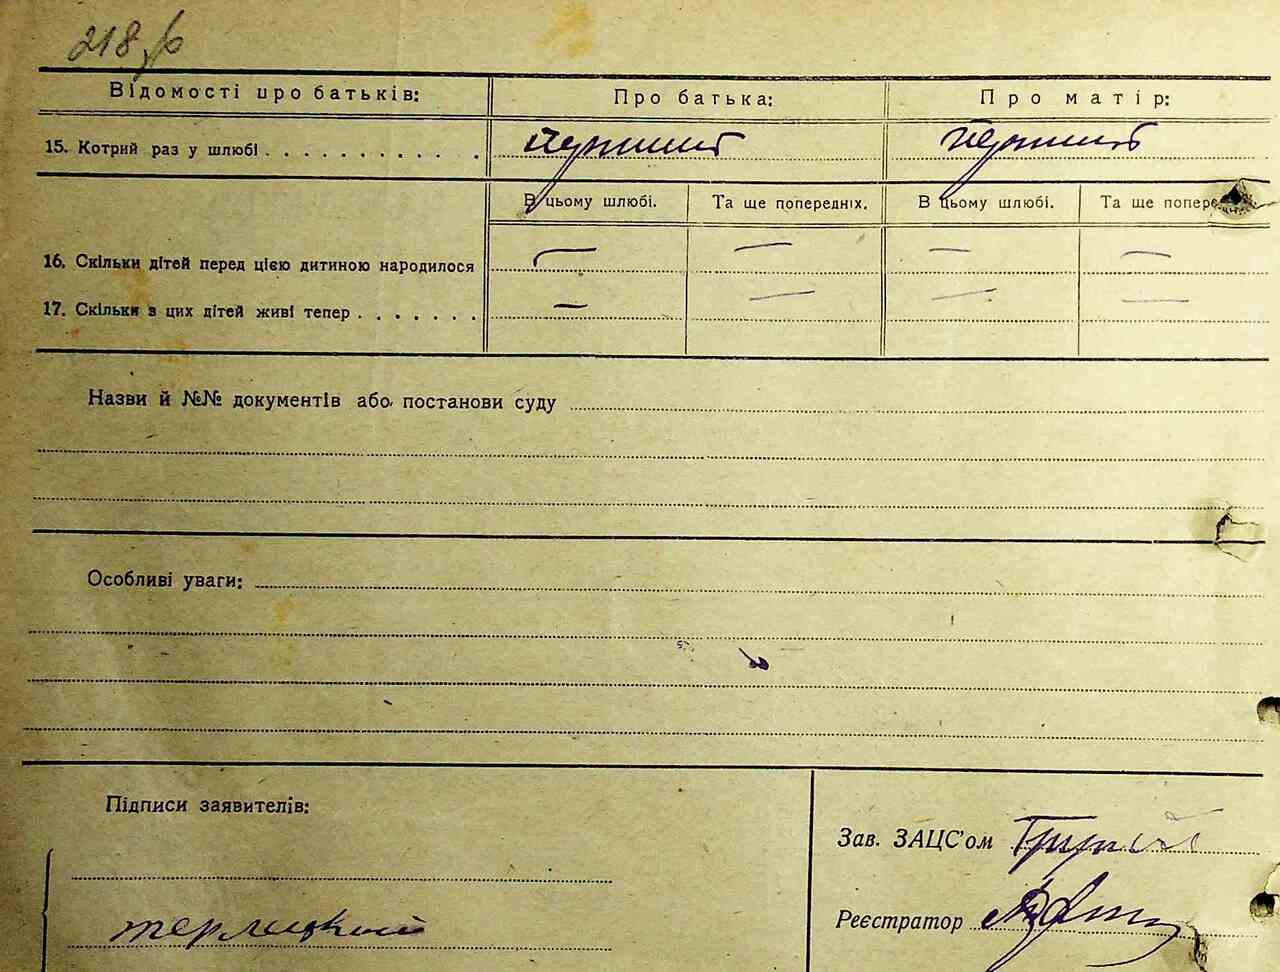 218
Відомості про батьків: Про батька: Про матір:
15. Котрий раз у шлюбі . . . . . . . . . . . . Перший Перший
В цьому шлюбі. Та ще попередніх. В цьому шлюбі. Та ще попере
16. Скільки дітей перед цією дитиною народилося — — — —
17. Скільки з цих дітей живі тепер . . . . . . . — — — —
Назви й №№ документів або постанови суду
Особливі уваги:
Підписи заявителів:
Зав. ЗАЦС'ом
Реєстратор
Терлицкий